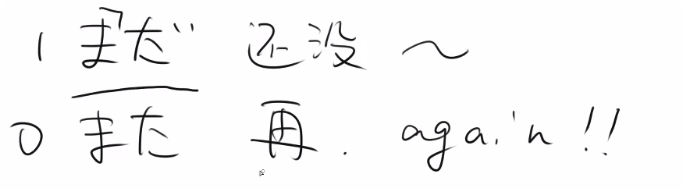 1 まだ 还没～
0 また 再. again!!